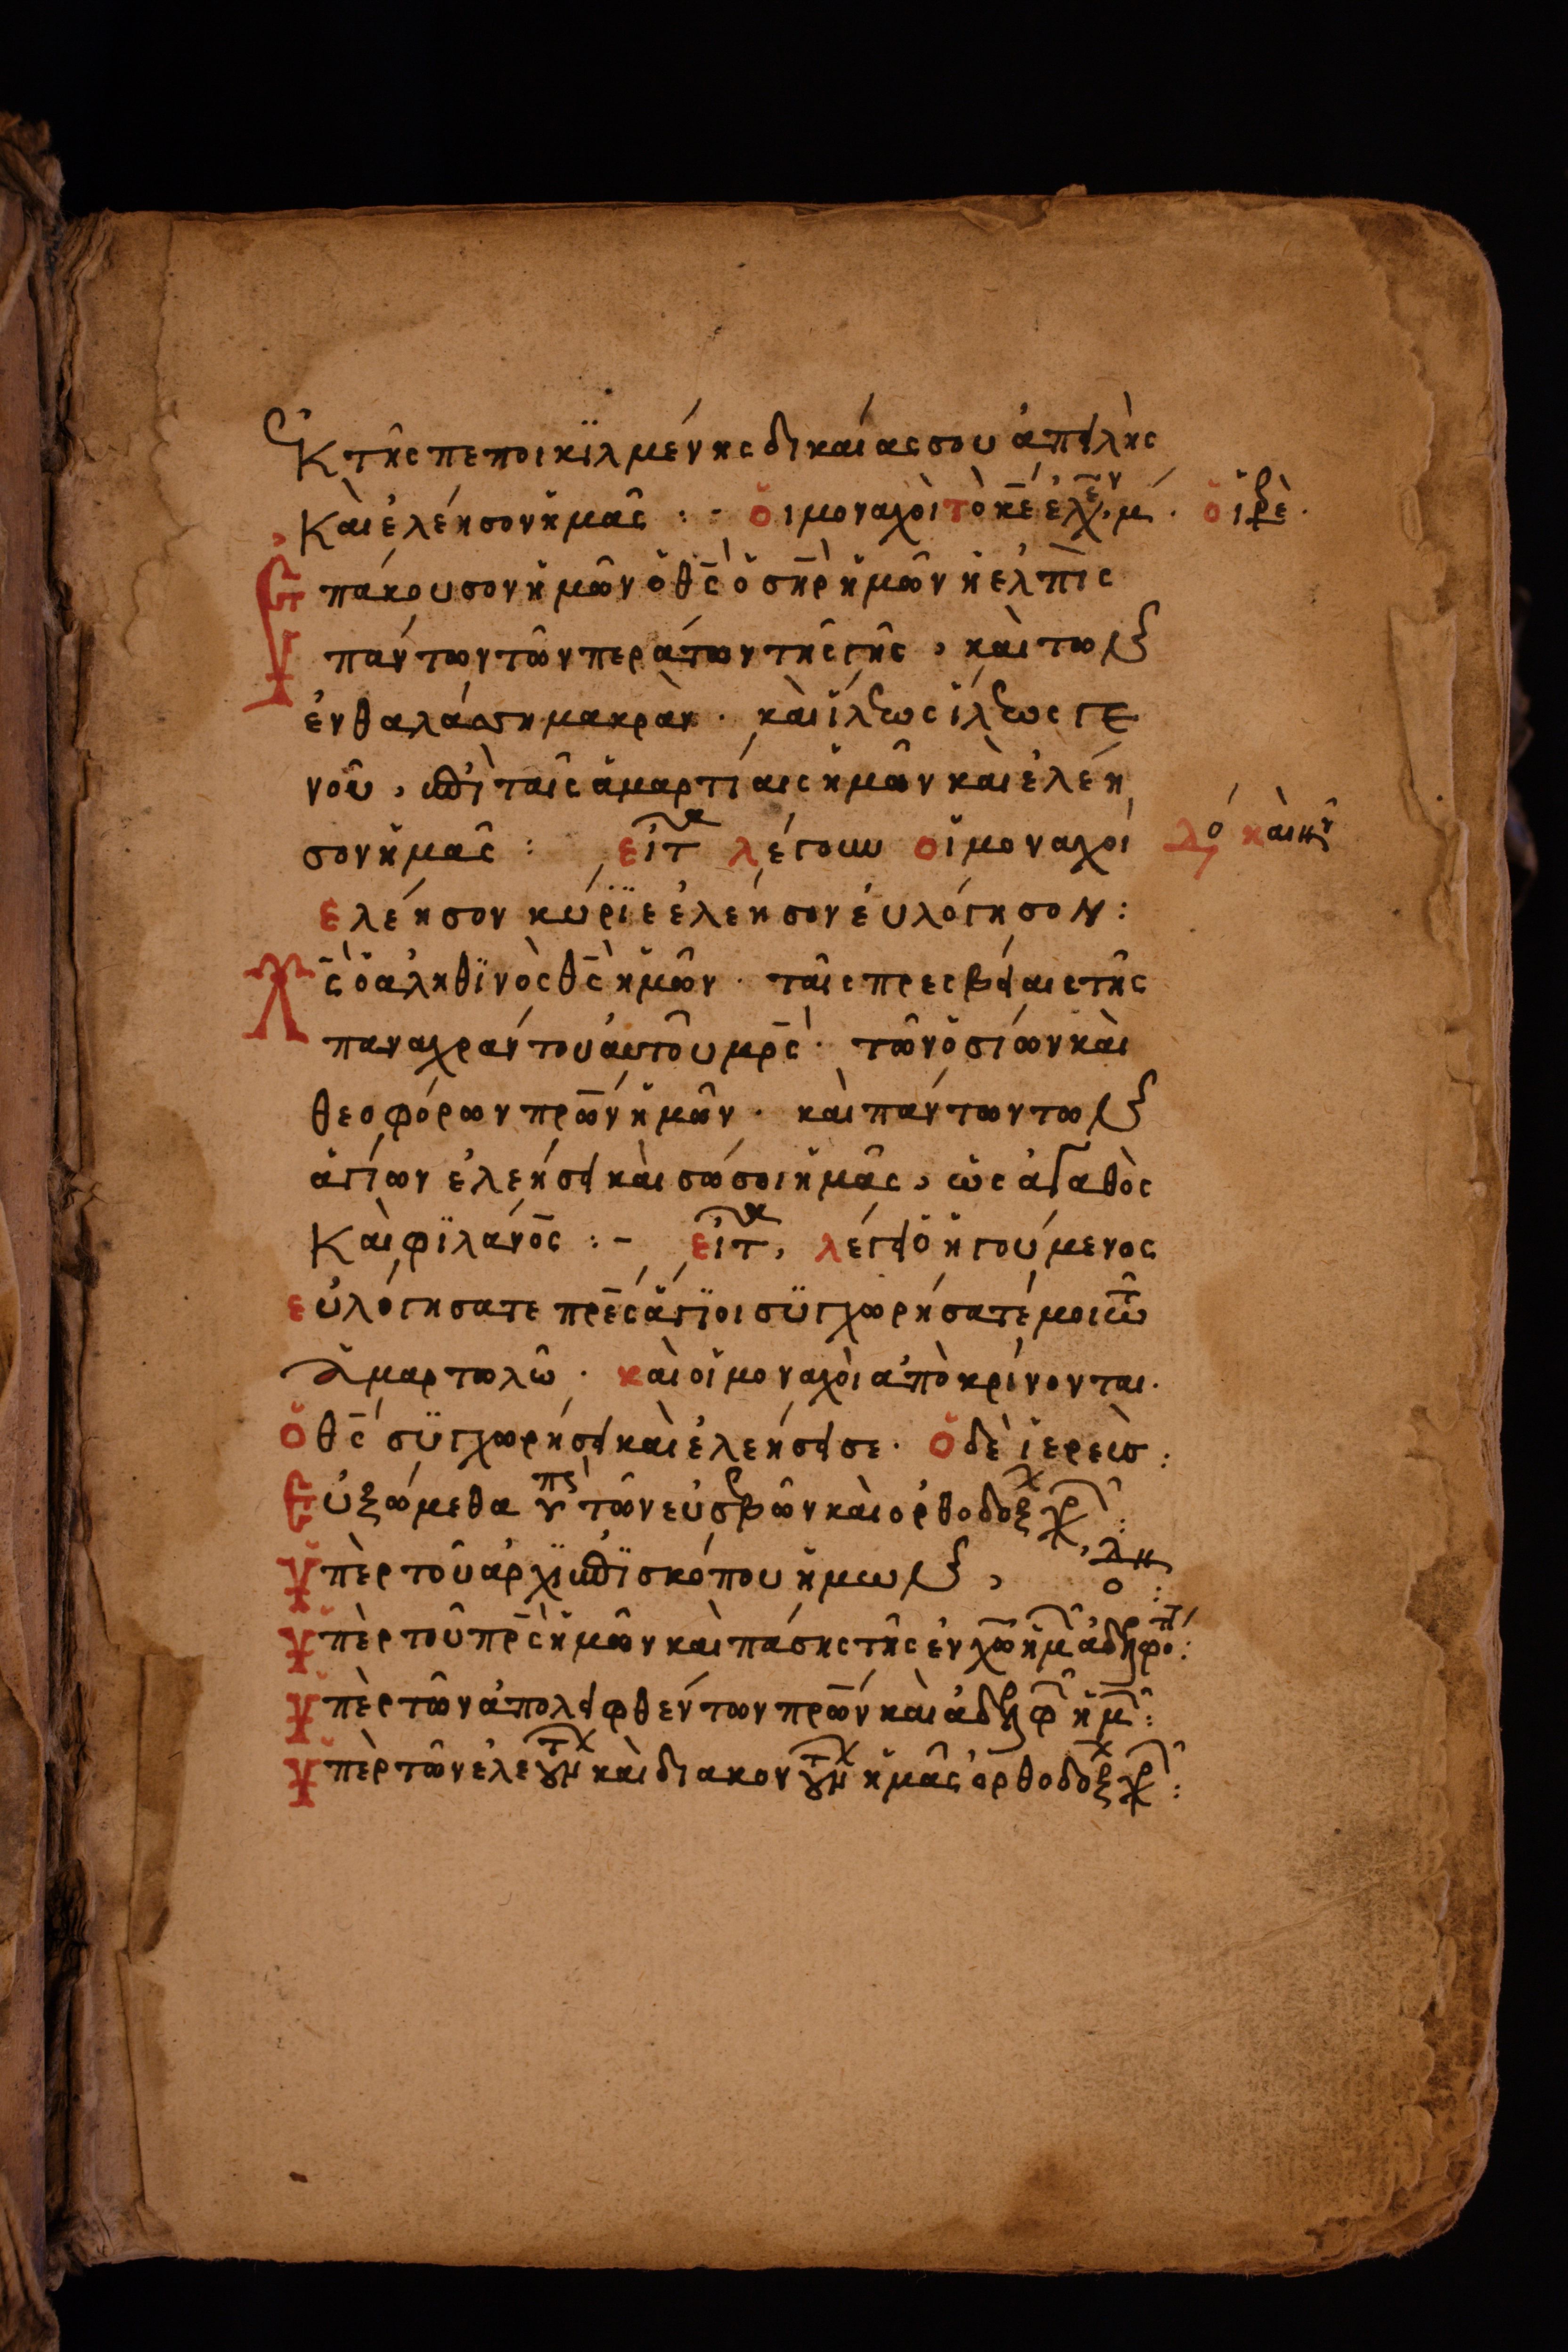 ἐκ τῆς πεποικϊλμένης δικαίας σου ἀπειλῆς
καὶ ἐλέησον ἡμᾶς : - ὁι μοναχοὶ τὸ κ̅ε̅ ἐλέησον μ. ὁ ἱερεὺ.
Ἐπάκουσον ἡμῶν ὁ θ̅ς̅ ὁ σ̅η̅ρ̅ ἡμῶν ἡ ἐλπὶς
πάντων τῶν περάτων τῆς γῆς, καὶ τῶν
ἐν θαλάσση μακρὰν. καὶ ἵλεως ἵλεως γε
νοῦ, ἐπὶ ταῖς ἁμαρτίαις ἡμῶν καὶ ἐλέη
σον ἡμᾶς : εἶτα λέγουν οἱ μοναχοί
ἐλέησον κύρϊε ἐλέησον ἐυλόγησον :
Χ̅ς̅ ὁ ἀληθϊνὸς θ̅ς̅ ἡμῶν. ταῖς πρεσβείαις τῆς
παναχράντου ἀυτοῦ μ̅ρ̅ς̅. τῶν ὁσίων καὶ
θεοφόρων π̅ρ̅ω̅ν̅ ἡμῶν. καὶ πάντων τῶν
ἁγίων ἐλεήσει καὶ σώσοι ἡμᾶς, ὡς ἀγαθὸς
καὶ φϊλάν̅ο̅ς̅ : - εἶτα, λέγει ὁ ἡγούμενος
εὐλόγησατε π̅ρ̅ε̅ς̅ ἅγϊοι σϋγχωρήσατέ μοι τῶ
ἁμαρτωλῶ. καὶ οἱ μοναχοὶ ἀπὸκρίνονται.
ὁ θ̅ς̅ σϋγχωρήσει καὶ ἐλεήσει σε. ὁ δὲ ἱερεὺς :
Εὐξώμεθα ὑπὲρ τῶν εὐσεβῶν καὶ ορθοδόξ χρ :
Ὑπὲρ τοῦ ἀρχϊεπϊσκόπου ἡμῶν,
Ὑπὲρ τοῦ π̅ρ̅ς̅ ἡμῶν καὶ πάσης τῆς ἐν χ̅ω̅ ἡμ ἀδελφο :
Ὑπὲρ τῶν ἀπολειφθέντων π̅ρ̅ω̅ν̅ καὶ ἀδελφ ἡμ :
Ὑπὲρ τῶν ελεούντ καὶ διακονούντ ἡμᾶς ὀρθοδόξ χρ :